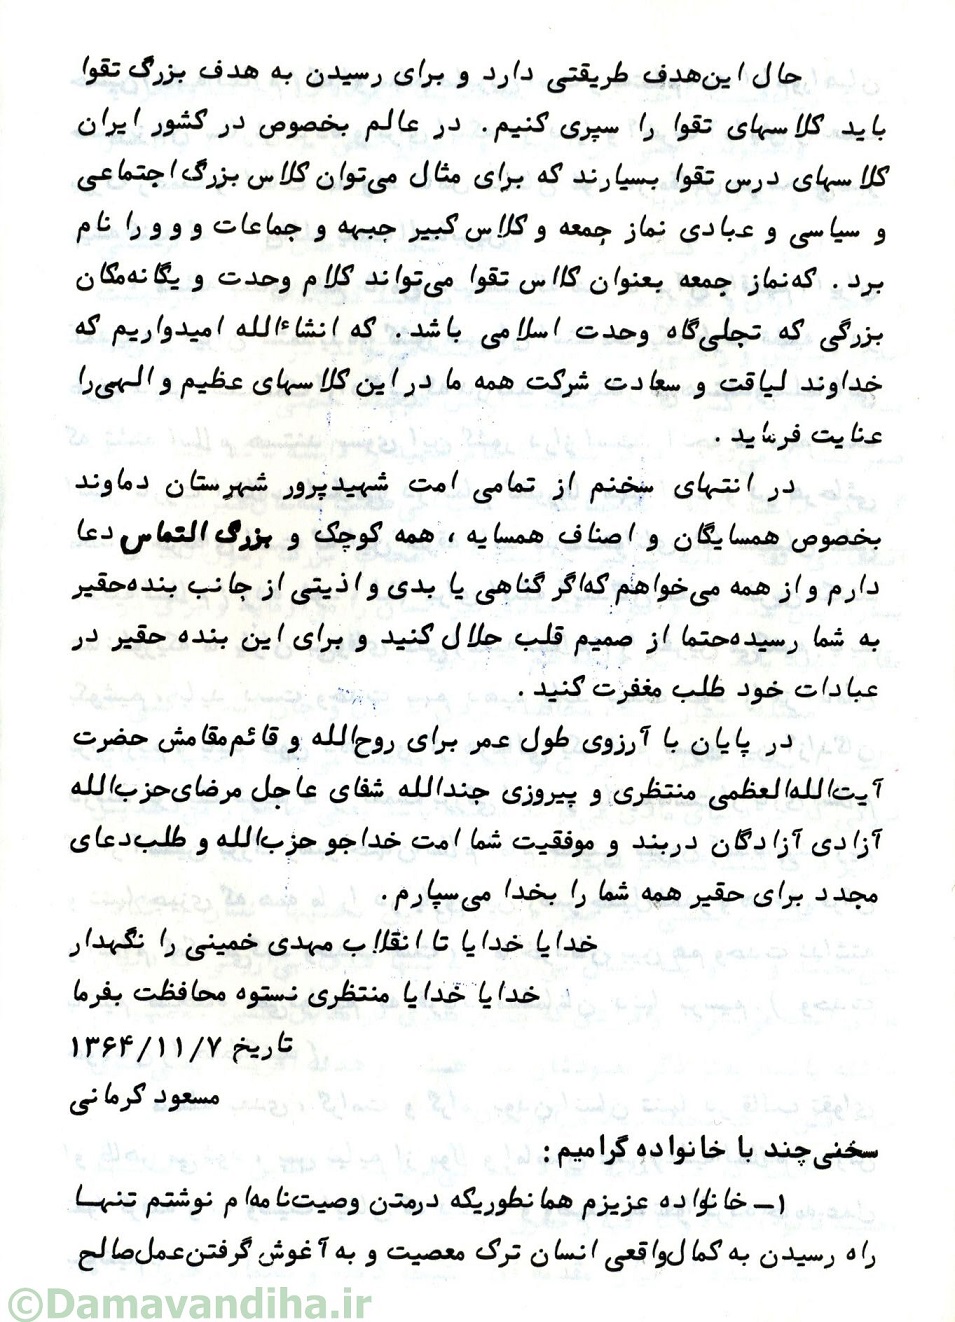 حال این‌هدف طریقتی دارد و برای رسیدن به هدف بزرگ تقوا
باید کلاسهای تقوا را سپری کنیم. در عالم بخصوص در کشور ایران
کلاسهای درس تقوا بسیارند که برای مثال می‌توان کلاس بزرگ اجتماعی
و سیاسی و عبادی نماز جمعه و کلاس کبیر جبهه و جماعات و و و را نام
برد. که‌نماز جمعه بعنوان کلاس تقوا می‌تواند کلام وحدت و یگانه‌مکان
بزرگی که تجلی‌گاه وحدت اسلامی باشد. که انشاءالله امیدواریم که
خداوند لیاقت و سعادت شرکت همه ما در این کلاسهای عظیم و الهی‌را
عنایت فرماید.
در انتهای سخنم از تمامی امت شهیدپرور شهرستان دماوند
بخصوص همسایگان و اصناف همسایه، همه کوچک و بزرگ التماس دعا
دارم و از همه می‌خواهم که‌اگر گناهی یا بدی و اذیتی از جانب بنده‌حقیر
به شما رسیده‌حتما از صمیم قلب حلال کنید و برای این بنده حقیر در
عبادات خود طلب مغفرت کنید.
در پایان با آرزوی طول عمر برای روح‌الله و قائم‌مقامش حضرت
آیت‌الله‌العظمی منتظری و پیروزی جندالله شفای عاجل مرضای‌حزب‌الله
آزادی آزادگان دربند و موفقیت شما امت خداجو حزب‌الله و طلب‌دعای
مجدد برای حقیر همه شما را بخدا می‌سپارم.
خدایا خدایا تا انقلاب مهدی خمینی را نگهدار
خدایا خدایا منتظری نستوه محافظت بفرما
تاریخ ۱۳۶۴/۱۱/۷
مسعود کرمانی
سخنی‌چند با خانواده گرامیم:
۱ــ خانواده عزیزم همانطوریکه درمتن وصیت‌نامه‌ام نوشتم تنهـا
راه رسیدن به کمال‌واقعی انسان ترک معصیت و به آغوش گرفتن‌عمل‌صالح
©Damavandiha.ir